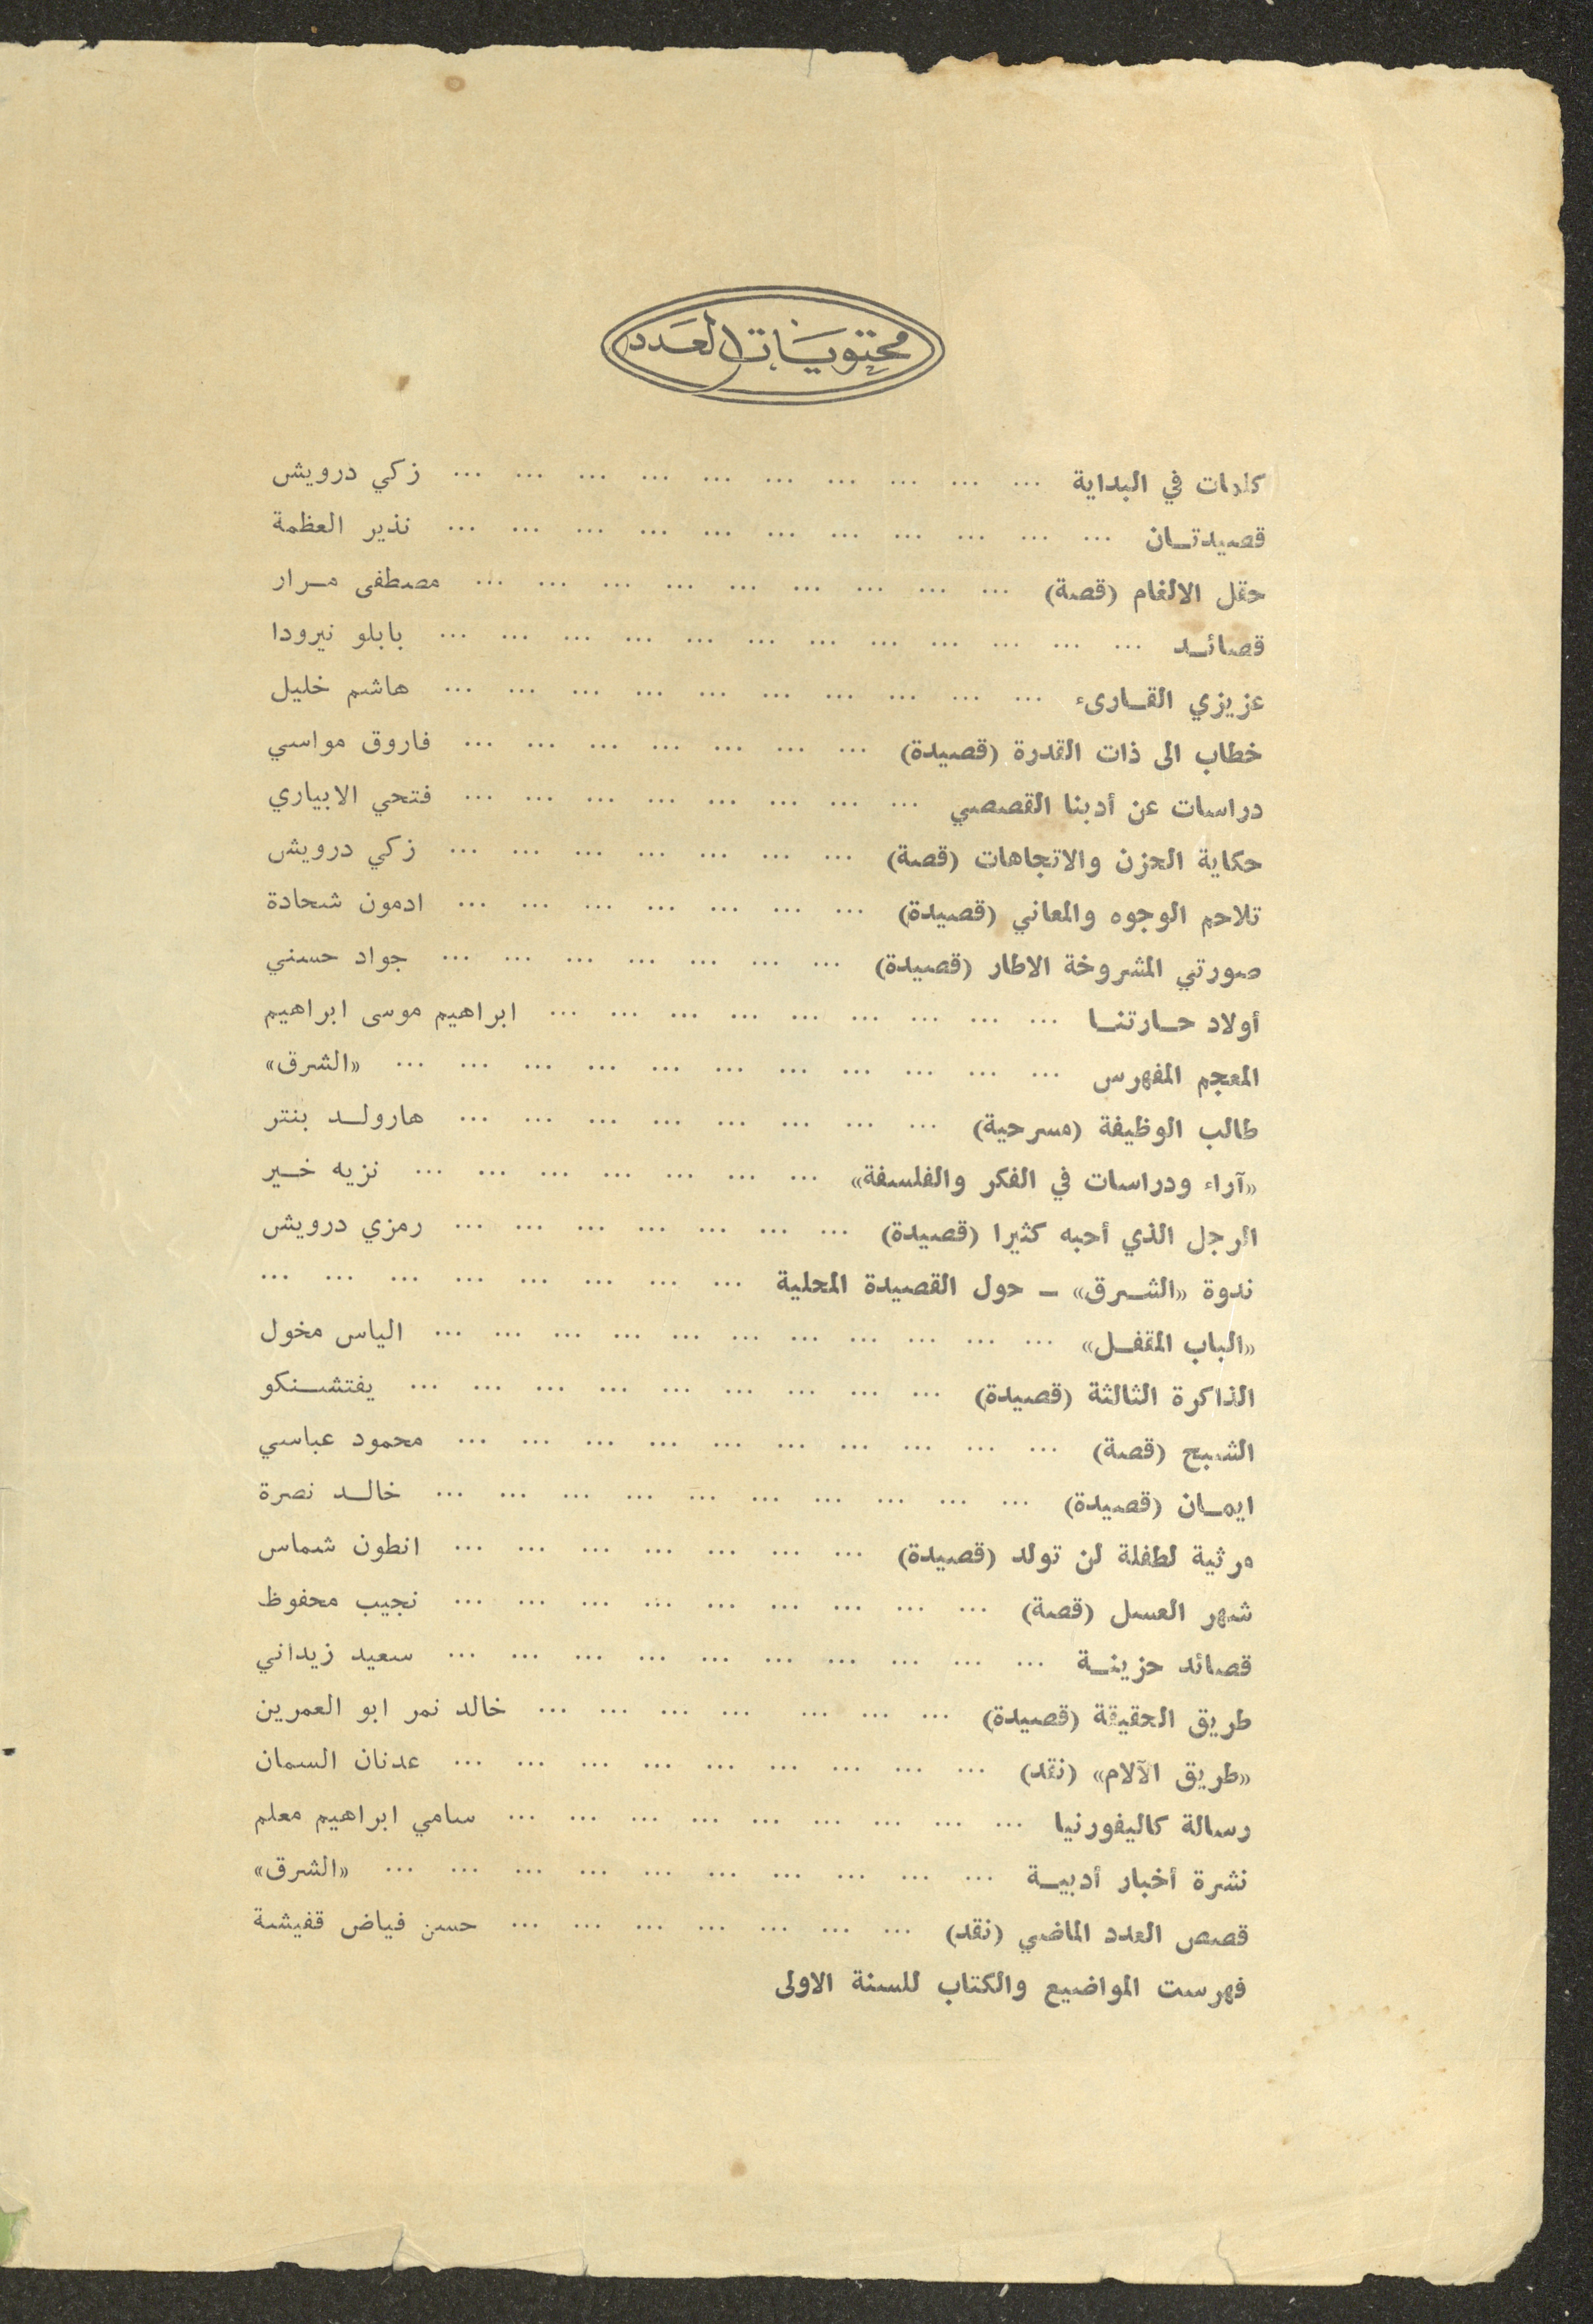 محتويات العدد
كلمات في البداية ... ... ... ... ... ... ... ... ... ... زكي درويش
قصيدتـان ... ... ... ... ... ... ... ... ... ... ... نذير العظمة
حقل الالغام (قصة) ... ... ... ... ... ... ... ... ... مصطفى مـرار
قصائـد ... ... ... ... ... ... ... ... ... ... ... ... بابلو نيرودا
عزيزي القـارىء ... ... ... ... ... ... ... ... ... ... هاشم خليل
خطاب الى ذات القدرة (قصيدة) ... ... ... ... ... ... ... فاروق مواسي
دراسات عن أدبنا القصصي ... ... ... ... ... ... ... ... فتحي الابياري
حكاية الحزن والاتجاهات (قصة) ... ... ... ... ... ... ... زكي درويش
تلاحم الوجوه والمعاني (قصيدة) ... ... ... ... ... ... ... ادمون شحادة
صورتي المشروخة الاطار (قصيدة) ... ... ... ... ... ... ... جواد حسني
أولاد حـارتنـا ... ... ... ... ... ... ... ... ... ابراهيم موسى ابراهيم
المعجم المفهرس ... ... ... ... ... ... ... ... ... ... ... «الشرق»
طالب الوظيفة (مسرحية) ... ... ... ... ... ... ... ... هارولـد بنتر
«آراء ودراسات في الفكر والفلسفة» ... ... ... ... ... ... ... نزيه خـير
الرجل الذي أحبه كثيرا (قصيدة) ... ... ... ... ... ... ... رمزي درويش
ندوة «الشـرق» ـ حول القصيدة المحلية ... ... ... ... ... ... ... ...
«الباب المقفـل» ... ... ... ... ... ... ... ... ... ... ... الياس مخول
الذاكرة الثالثة (قصيدة) ... ... ... ... ... ... ... ... ... يفتشـنكو
الشبح (قصة) ... ... ... ... ... ... ... ... ... ... محمود عباسي
ايمـان (قصيدة) ... ... ... ... ... ... ... ... ... ... خالـد نصرة
مرثية لطفلة لن تولد (قصيدة) ... ... ... ... ... ... ... انطون شماس
شهر العسل (قصة) ... ... ... ... ... ... ... ... ... نجيب محفوظ
قصائد حزينـة ... ... ... ... ... ... ... ... ... ... سعيد زيداني
طريق الحقيقة (قصيدة) ... ... ... ... ... ... ... خالد نمر ابو العمرين
«طريق الآلام» (نقد) ... ... ... ... ... ... ... ... ... عدنان السمان
رسالة كاليفورنيا ... ... ... ... ... ... ... ... ... سامي ابراهيم معلم
نشرة أخبار أدبيـة ... ... ... ... ... ... ... ... ... ... «الشرق»
قصص العدد الماضي (نقد) ... ... ... ... ... ... ... حسن فياض قفيشة
فهرست المواضيع والكتاب للسنة الاولى